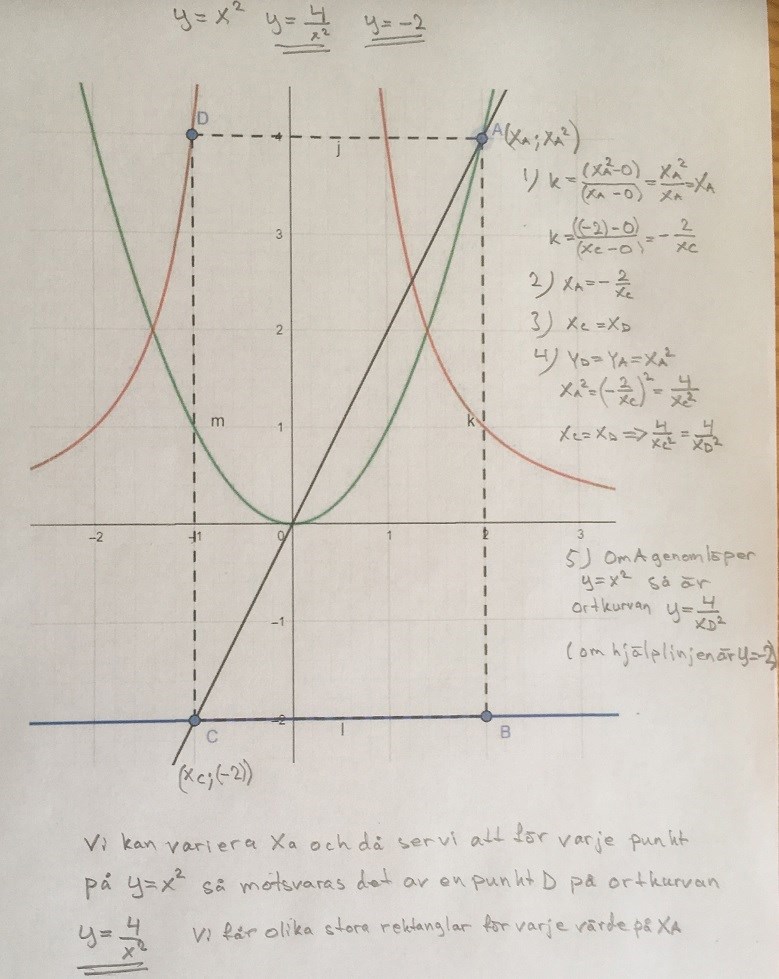 y = x² y = 4/x² y = -2
D
A (XA; XA²)
4
j
1) k = (XA²-0)/(XA-0) = XA²/XA = XA
3
k = ((-2)-0)/(XC-0) = -2/XC
2) XA = -2/XC
2
3) XC = XD
4) YD = YA = XA²
XA² = (-2/XC)² = 4/XC²
m
1
k
XC = XD => 4/XC² = 4/XD²
-2 -1 0 1 2 3
5) Om A genomlöper
y = x² så är
ortkurvan y = 4/XD²
(om hjälplinjen är y=-2)
-1
-2
C
l
B
(XC; (-2))
Vi kan variera Xa och då ser vi att för varje punkt
på y = x² så motsvaras det av en punkt D på ortkurvan
y = 4/x² Vi får olika stora rektanglar för varje värde på XA